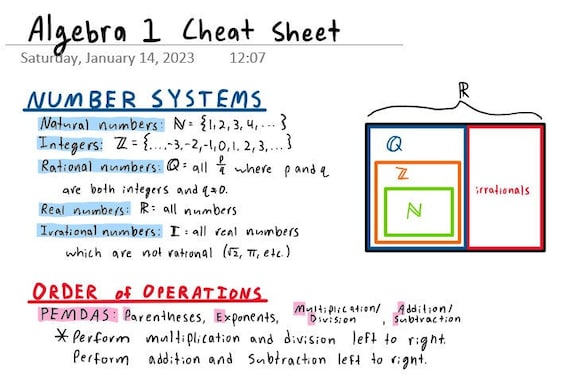 Algebra 1 Cheat Sheet
Saturday, January 14, 2023 12:07
NUMBER SYSTEMS
Natural numbers: ℕ = {1, 2, 3, 4, ... }
Integers: ℤ = {..., -3, -2, -1, 0, 1, 2, 3, ... }
Rational numbers: ℚ = all p/q where p and q
are both integers and q≠0.
Real numbers: ℝ = all numbers
Irrational numbers: 𝕀 = all real numbers
which are not rational (√2, π, etc.)
ℝ
ℚ
ℤ
ℕ
irrationals
ORDER of OPERATIONS
PEMDAS: Parentheses, Exponents, Multiplication/Division, Addition/Subtraction
*Perform multiplication and division left to right.
Perform addition and subtraction left to right.